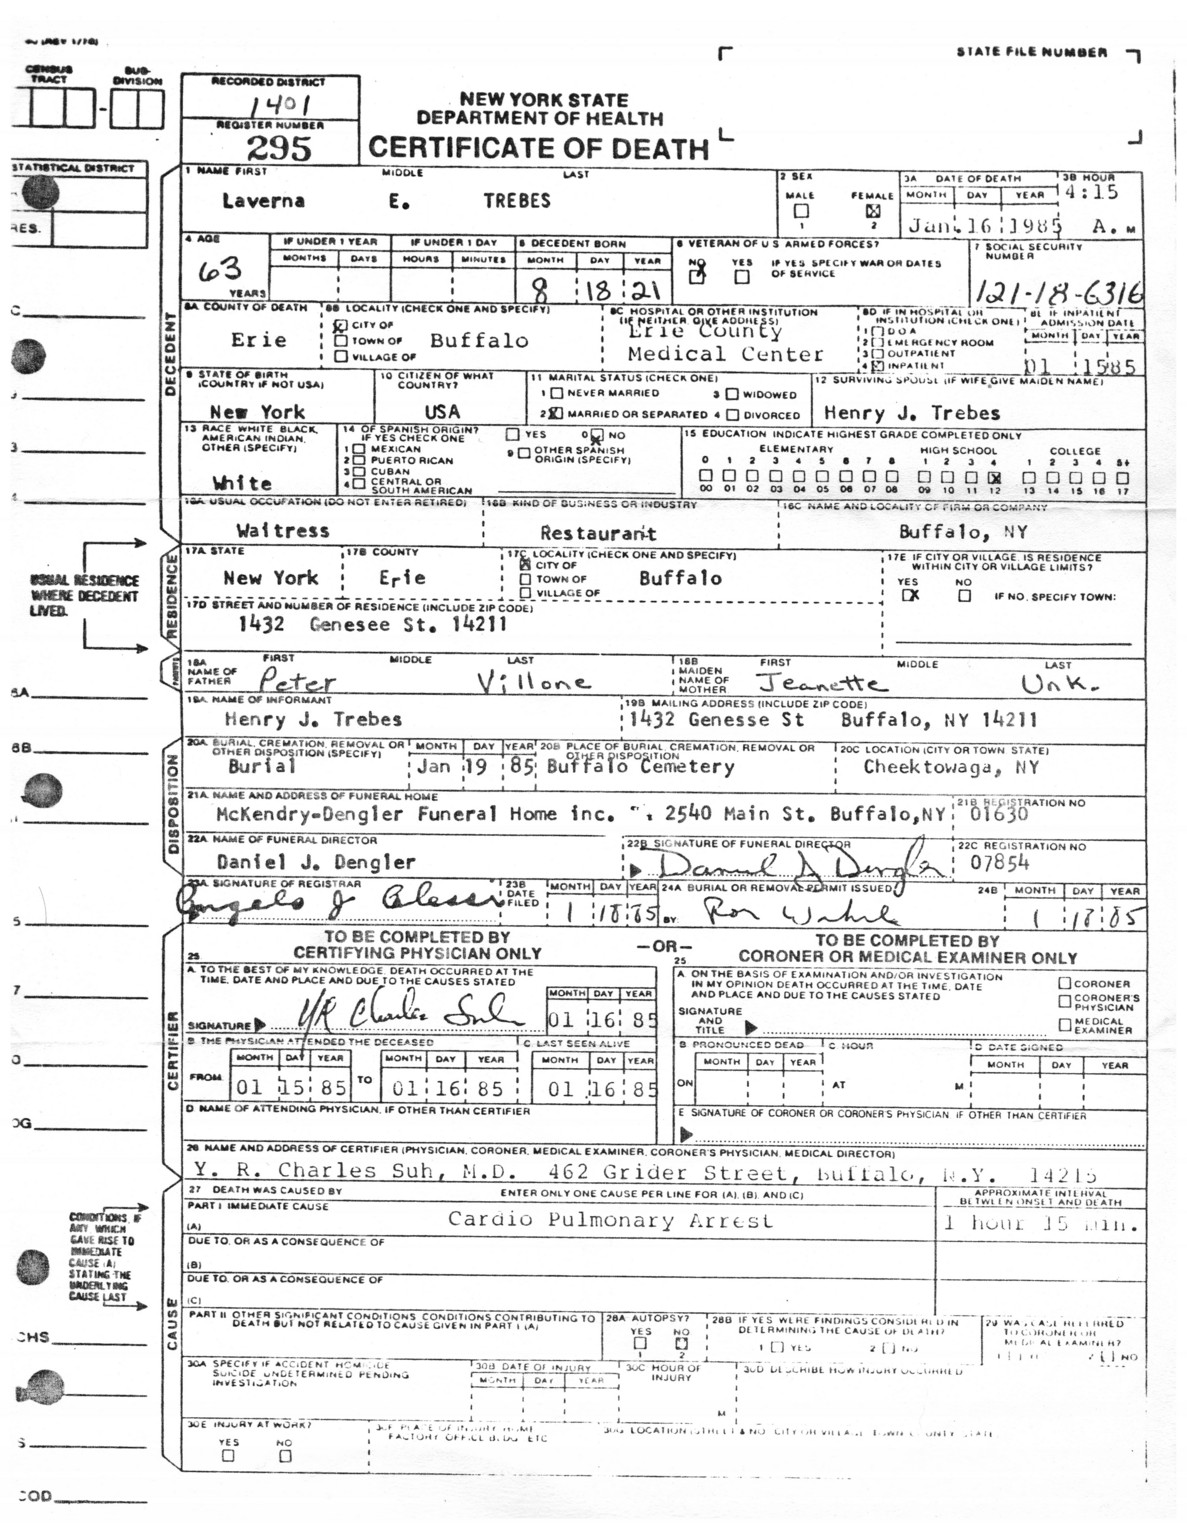 STATE FILE NUMBER
CENSUS TRACT
SUB-DIVISION
RECORDED DISTRICT
1401
REGISTER NUMBER
295
NEW YORK STATE
DEPARTMENT OF HEALTH
CERTIFICATE OF DEATH
STATISTICAL DISTRICT
RES.
DECEDENT
1 NAME FIRST MIDDLE LAST
Laverna E. TREBES
2 SEX
MALE FEMALE
1 2
3A DATE OF DEATH
MONTH DAY YEAR
Jan. 16 1985
3B HOUR
4:15
A. M
4 AGE
63
YEARS
IF UNDER 1 YEAR IF UNDER 1 DAY
MONTHS DAYS HOURS MINUTES
5 DECEDENT BORN
MONTH DAY YEAR
8 18 21
6 VETERAN OF U S ARMED FORCES?
NO YES IF YES SPECIFY WAR OR DATES
OF SERVICE
7 SOCIAL SECURITY
NUMBER
121-18-6316
8A COUNTY OF DEATH
Erie
8B LOCALITY (CHECK ONE AND SPECIFY)
CITY OF
TOWN OF
VILLAGE OF
Buffalo
8C HOSPITAL OR OTHER INSTITUTION
(IF NEITHER, GIVE ADDRESS)
Erie County
Medical Center
8D IF IN HOSPITAL OR
INSTITUTION (CHECK ONE)
1 DOA
2 EMERGENCY ROOM
3 OUTPATIENT
4 INPATIENT
8E IF INPATIENT
ADMISSION DATE
MONTH DAY YEAR
01 1585
9 STATE OF BIRTH
(COUNTRY IF NOT USA)
New York
10 CITIZEN OF WHAT
COUNTRY?
USA
11 MARITAL STATUS (CHECK ONE)
1 NEVER MARRIED 3 WIDOWED
2 MARRIED OR SEPARATED 4 DIVORCED
12 SURVIVING SPOUSE (IF WIFE, GIVE MAIDEN NAME)
Henry J. Trebes
13 RACE WHITE BLACK,
AMERICAN INDIAN,
OTHER (SPECIFY)
White
14 OF SPANISH ORIGIN?
IF YES CHECK ONE
YES 0 NO
1 MEXICAN
2 PUERTO RICAN
3 CUBAN
4 CENTRAL OR
SOUTH AMERICAN
9 OTHER SPANISH
ORIGIN (SPECIFY)
15 EDUCATION INDICATE HIGHEST GRADE COMPLETED ONLY
ELEMENTARY HIGH SCHOOL COLLEGE
0 1 2 3 4 5 6 7 8 1 2 3 4 1 2 3 4 5+
00 01 02 03 04 05 06 07 08 09 10 11 12 13 14 15 16 17
16A USUAL OCCUPATION (DO NOT ENTER RETIRED)
Waitress
16B KIND OF BUSINESS OR INDUSTRY
Restaurant
16C NAME AND LOCALITY OF FIRM OR COMPANY
Buffalo, NY
USUAL RESIDENCE
WHERE DECEDENT
LIVED.
RESIDENCE
17A STATE
New York
17B COUNTY
Erie
17C LOCALITY (CHECK ONE AND SPECIFY)
CITY OF
TOWN OF
VILLAGE OF
Buffalo
17E IF CITY OR VILLAGE, IS RESIDENCE
WITHIN CITY OR VILLAGE LIMITS?
YES NO
IF NO, SPECIFY TOWN:
17D STREET AND NUMBER OF RESIDENCE (INCLUDE ZIP CODE)
1432 Genesee St. 14211
18A NAME OF FATHER
FIRST MIDDLE LAST
Peter Villone
18B MAIDEN NAME OF MOTHER
FIRST MIDDLE LAST
Jeanette Unk.
19A NAME OF INFORMANT
Henry J. Trebes
19B MAILING ADDRESS (INCLUDE ZIP CODE)
1432 Genesse St Buffalo, NY 14211
DISPOSITION
20A BURIAL, CREMATION, REMOVAL OR
OTHER DISPOSITION (SPECIFY)
Burial
MONTH DAY YEAR
Jan 19 85
20B PLACE OF BURIAL, CREMATION, REMOVAL OR
OTHER DISPOSITION
Buffalo Cemetery
20C LOCATION (CITY OR TOWN STATE)
Cheektowaga, NY
21A NAME AND ADDRESS OF FUNERAL HOME
McKendry-Dengler Funeral Home inc. 2540 Main St. Buffalo,NY
21B REGISTRATION NO
01630
22A NAME OF FUNERAL DIRECTOR
Daniel J. Dengler
22B SIGNATURE OF FUNERAL DIRECTOR
Daniel J Dengler
22C REGISTRATION NO
07854
23A SIGNATURE OF REGISTRAR
Angelo J
23B DATE FILED
MONTH DAY YEAR
1 18 85
24A BURIAL OR REMOVAL PERMIT ISSUED
BY: Ron
24B MONTH DAY YEAR
1 18 85
CERTIFIER
TO BE COMPLETED BY
25 CERTIFYING PHYSICIAN ONLY
—OR—
TO BE COMPLETED BY
25 CORONER OR MEDICAL EXAMINER ONLY
A. TO THE BEST OF MY KNOWLEDGE, DEATH OCCURRED AT THE
TIME, DATE AND PLACE AND DUE TO THE CAUSES STATED
SIGNATURE YR Charles Suh
MONTH DAY YEAR
01 16 85
A ON THE BASIS OF EXAMINATION AND/OR INVESTIGATION
IN MY OPINION DEATH OCCURRED AT THE TIME, DATE
AND PLACE AND DUE TO THE CAUSES STATED
SIGNATURE
AND
TITLE
CORONER
CORONER'S
PHYSICIAN
MEDICAL
EXAMINER
B THE PHYSICIAN ATTENDED THE DECEASED
FROM MONTH DAY YEAR TO MONTH DAY YEAR
01 15 85 01 16 85
C LAST SEEN ALIVE
MONTH DAY YEAR
01 16 85
B PRONOUNCED DEAD
MONTH DAY YEAR
ON
C HOUR
AT M
D DATE SIGNED
MONTH DAY YEAR
D NAME OF ATTENDING PHYSICIAN, IF OTHER THAN CERTIFIER
E SIGNATURE OF CORONER OR CORONER'S PHYSICIAN, IF OTHER THAN CERTIFIER
26 NAME AND ADDRESS OF CERTIFIER (PHYSICIAN, CORONER, MEDICAL EXAMINER, CORONER'S PHYSICIAN, MEDICAL DIRECTOR)
Y. R. Charles Suh, M.D. 462 Grider Street, Buffalo, N.Y. 14215
CAUSE
27 DEATH WAS CAUSED BY ENTER ONLY ONE CAUSE PER LINE FOR (A), (B), AND (C)
APPROXIMATE INTERVAL
BETWEEN ONSET AND DEATH
PART I IMMEDIATE CAUSE
(A) Cardio Pulmonary Arrest
1 hour 15 min.
DUE TO, OR AS A CONSEQUENCE OF
(B)
DUE TO, OR AS A CONSEQUENCE OF
(C)
CONDITIONS, IF
ANY, WHICH
GAVE RISE TO
IMMEDIATE
CAUSE (A)
STATING THE
UNDERLYING
CAUSE LAST
PART II OTHER SIGNIFICANT CONDITIONS, CONDITIONS CONTRIBUTING TO
DEATH BUT NOT RELATED TO CAUSE GIVEN IN PART I (A)
28A AUTOPSY?
YES NO
2
28B IF YES WERE FINDINGS CONSIDERED IN
DETERMINING THE CAUSE OF DEATH?
1 YES 2 NO
29 WAS CASE REFERRED
TO CORONER OR
MEDICAL EXAMINER?
2 NO
30A SPECIFY IF ACCIDENT HOMICIDE
SUICIDE UNDETERMINED PENDING
INVESTIGATION
30B DATE OF INJURY
MONTH DAY YEAR
30C HOUR OF
INJURY
M
30D DESCRIBE HOW INJURY OCCURRED
30E INJURY AT WORK?
YES NO
30F PLACE OF INJURY HOME
FACTORY OFFICE BLDG ETC
30G LOCATION (STREET & NO. CITY OR VILLAGE TOWN COUNTY STATE